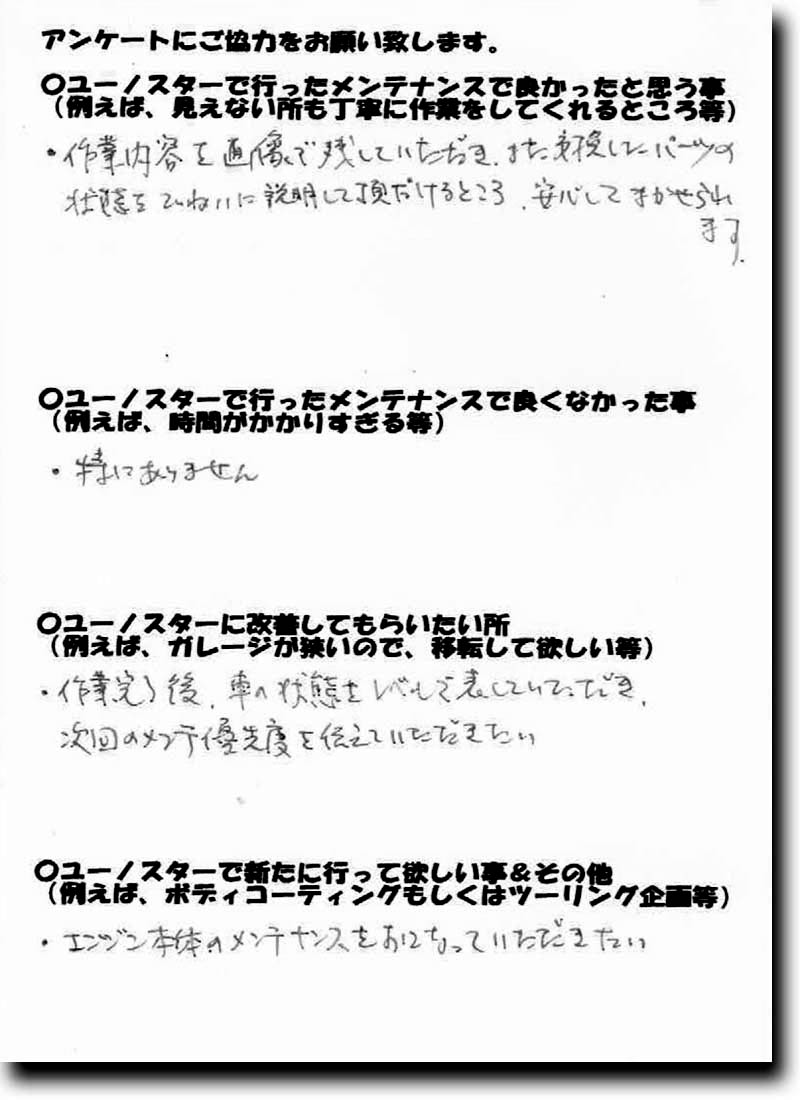 アンケートにご協力をお願い致します。
○ユーノスターで行ったメンテナンスで良かったと思う事
（例えば、見えない所も丁寧に作業をしてくれるところ等）
・作業内容を画像で残していただき、また交換したパーツの
状態をていねいに説明して頂だけるところ、安心してまかせられ
ます。
○ユーノスターで行ったメンテナンスで良くなかった事
（例えば、時間がかかりすぎる等）
・特にありません
○ユーノスターに改善してもらいたい所
（例えば、ガレージが狭いので、移転して欲しい等）
・作業完了後、車の状態をレベルで表していただき、
次回のメンテ優先度を伝えていただきたい
○ユーノスターで新たに行って欲しい事＆その他
（例えば、ボディコーティングもしくはツーリング企画等）
・エンジン本体のメンテナンスをおこなっていただきたい